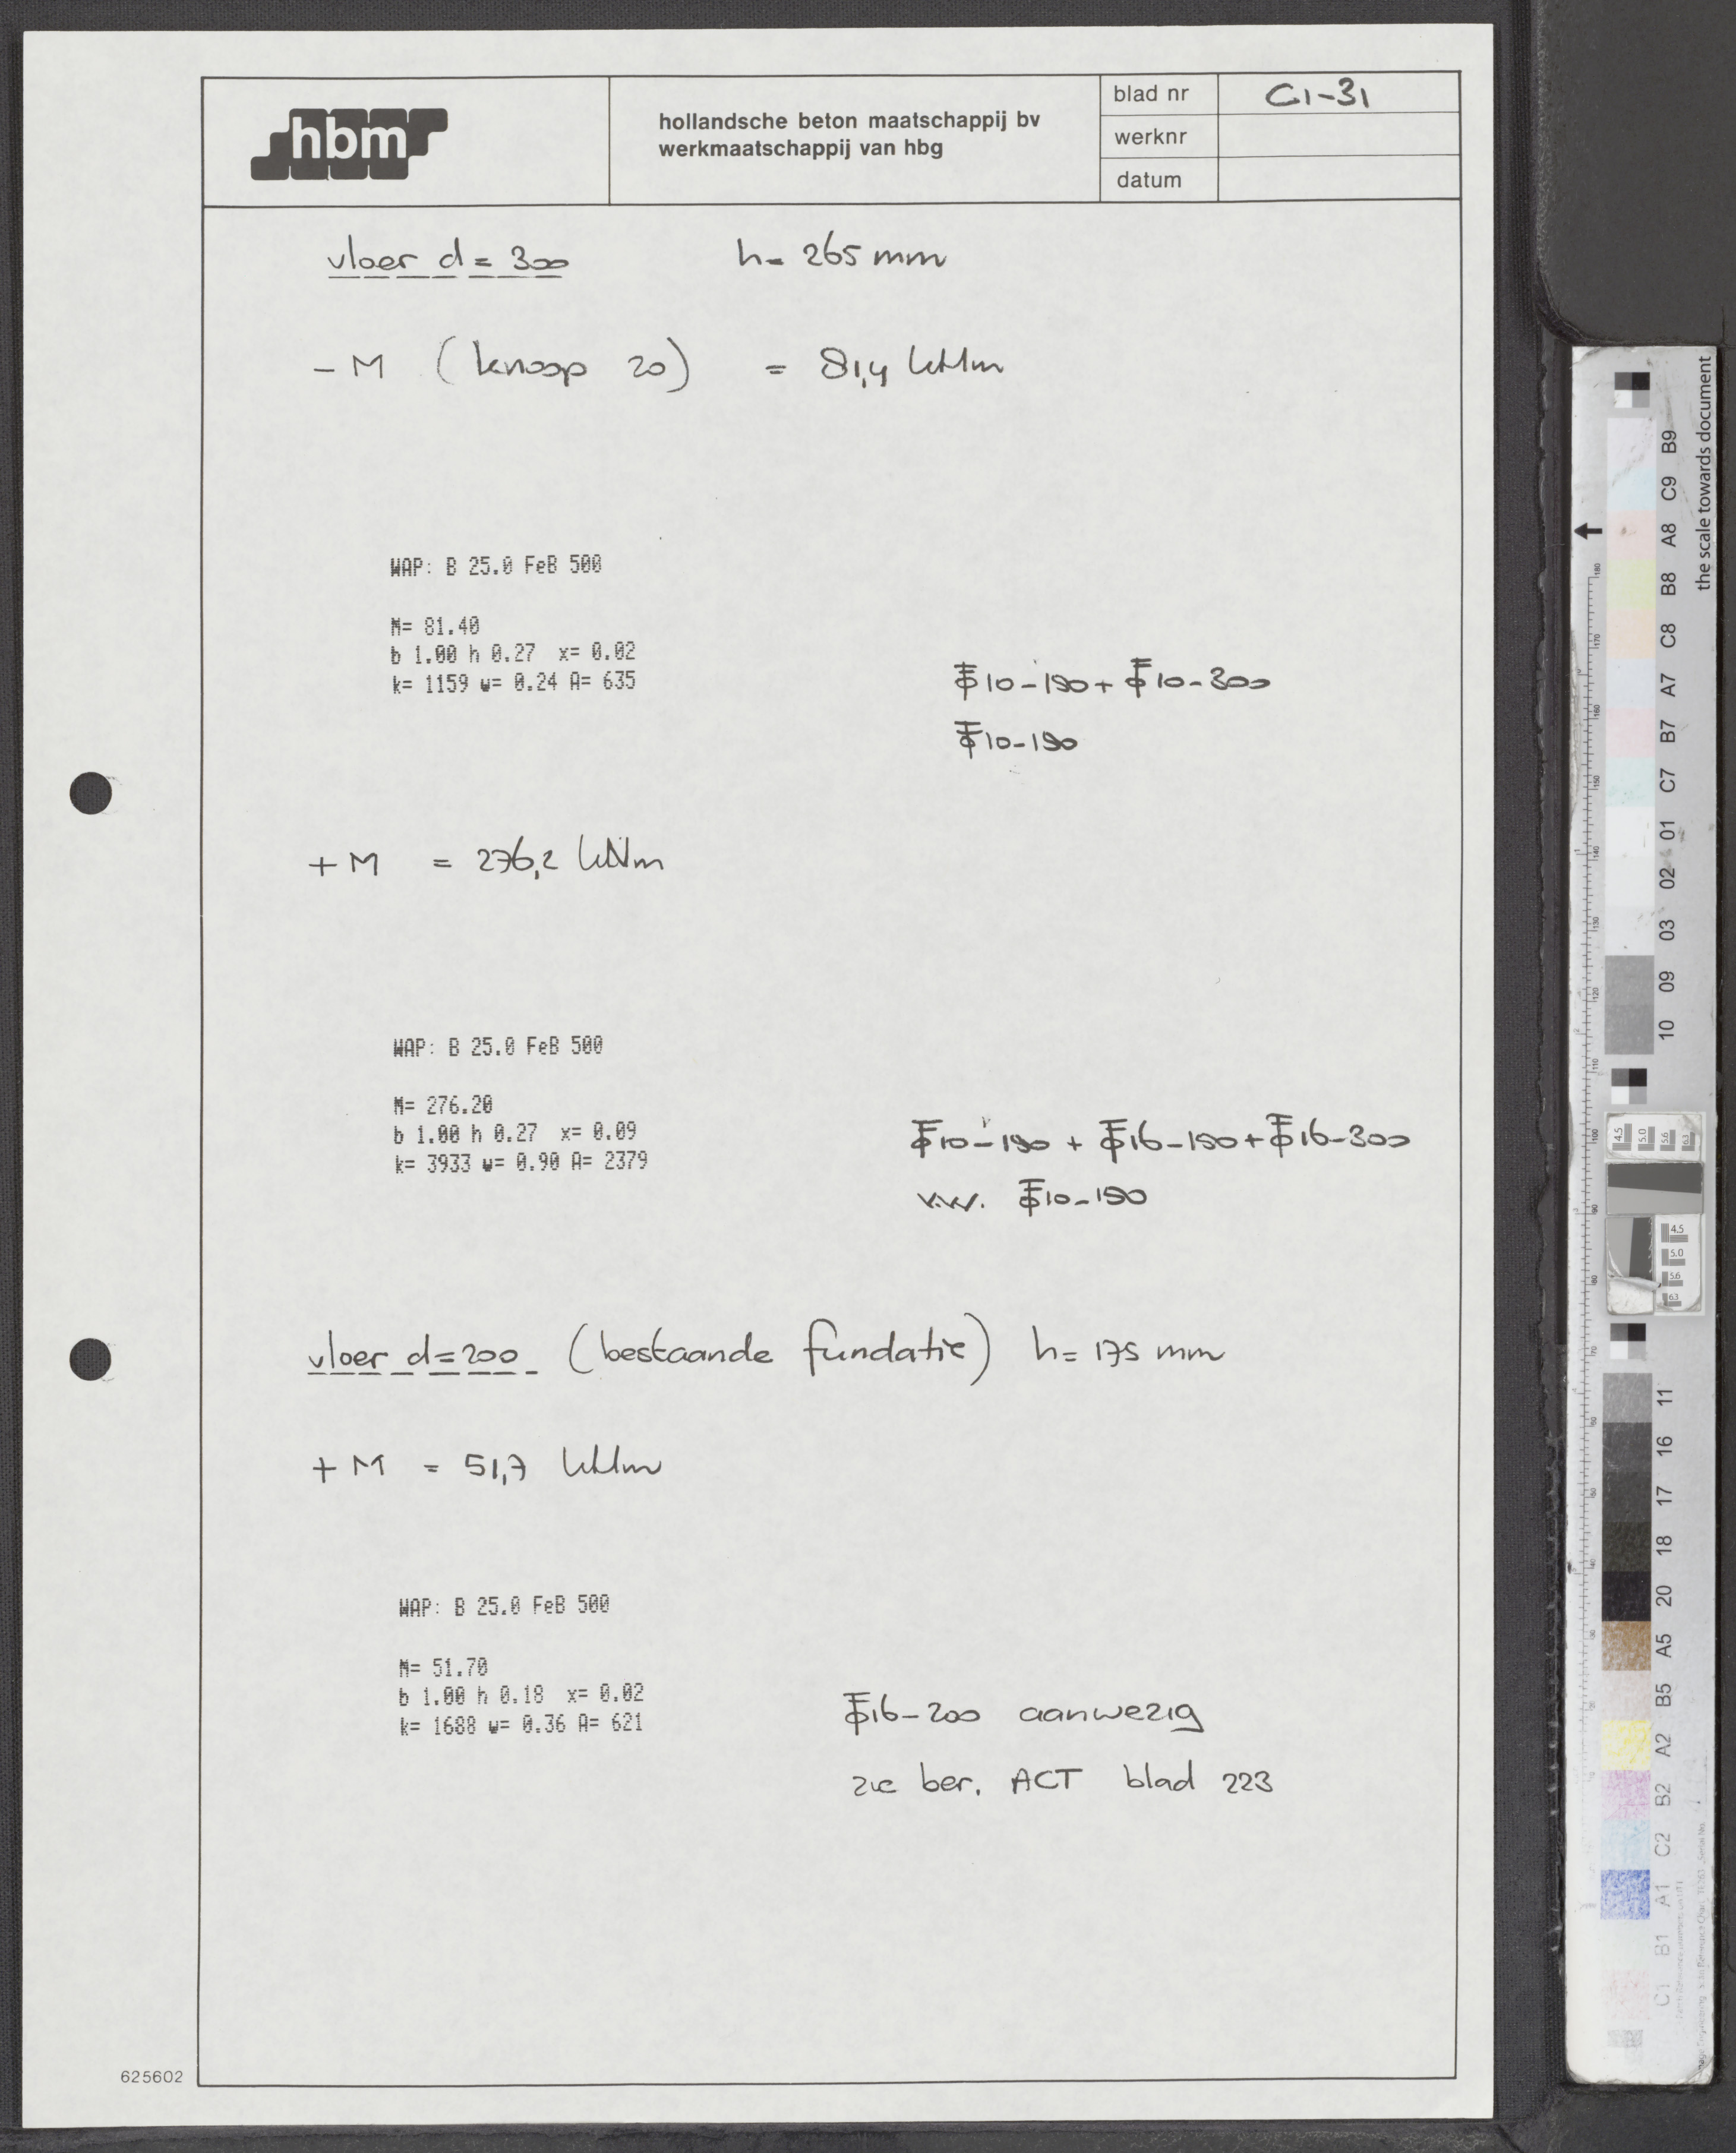 hbm
hollandsche beton maatschappij bv
werkmaatschappij van hbg
blad nr C1-31
werknr
datum
vloer d = 300 h = 265 mm
- M (knoop 20) = 81,4 kNm
WAP: B 25.0 FeB 500
M= 81.40
b 1.00 h 0.27 x= 0.02
k= 1159 w= 0.24 A= 635
Φ10-150 + Φ10-300
Φ10-150
+ M = 276,2 kNm
WAP: B 25.0 FeB 500
M= 276.20
b 1.00 h 0.27 x= 0.09
k= 3933 w= 0.90 A= 2379
Φ10-150 + Φ16-150 + Φ16-300
v.w. Φ10-150
vloer d=200 (bestaande fundatie) h= 175 mm
+ M = 51,7 kNm
WAP: B 25.0 FeB 500
M= 51.70
b 1.00 h 0.18 x= 0.02
k= 1688 w= 0.36 A= 621
Φ16-200 aanwezig
zie ber. ACT blad 223
625602
the scale towards document
B9
C9
A8
B8
C8
A7
B7
C7
01
02
03
09
10
11
16
17
18
20
A5
B5
A2
B2
C2
A1
B1
C1